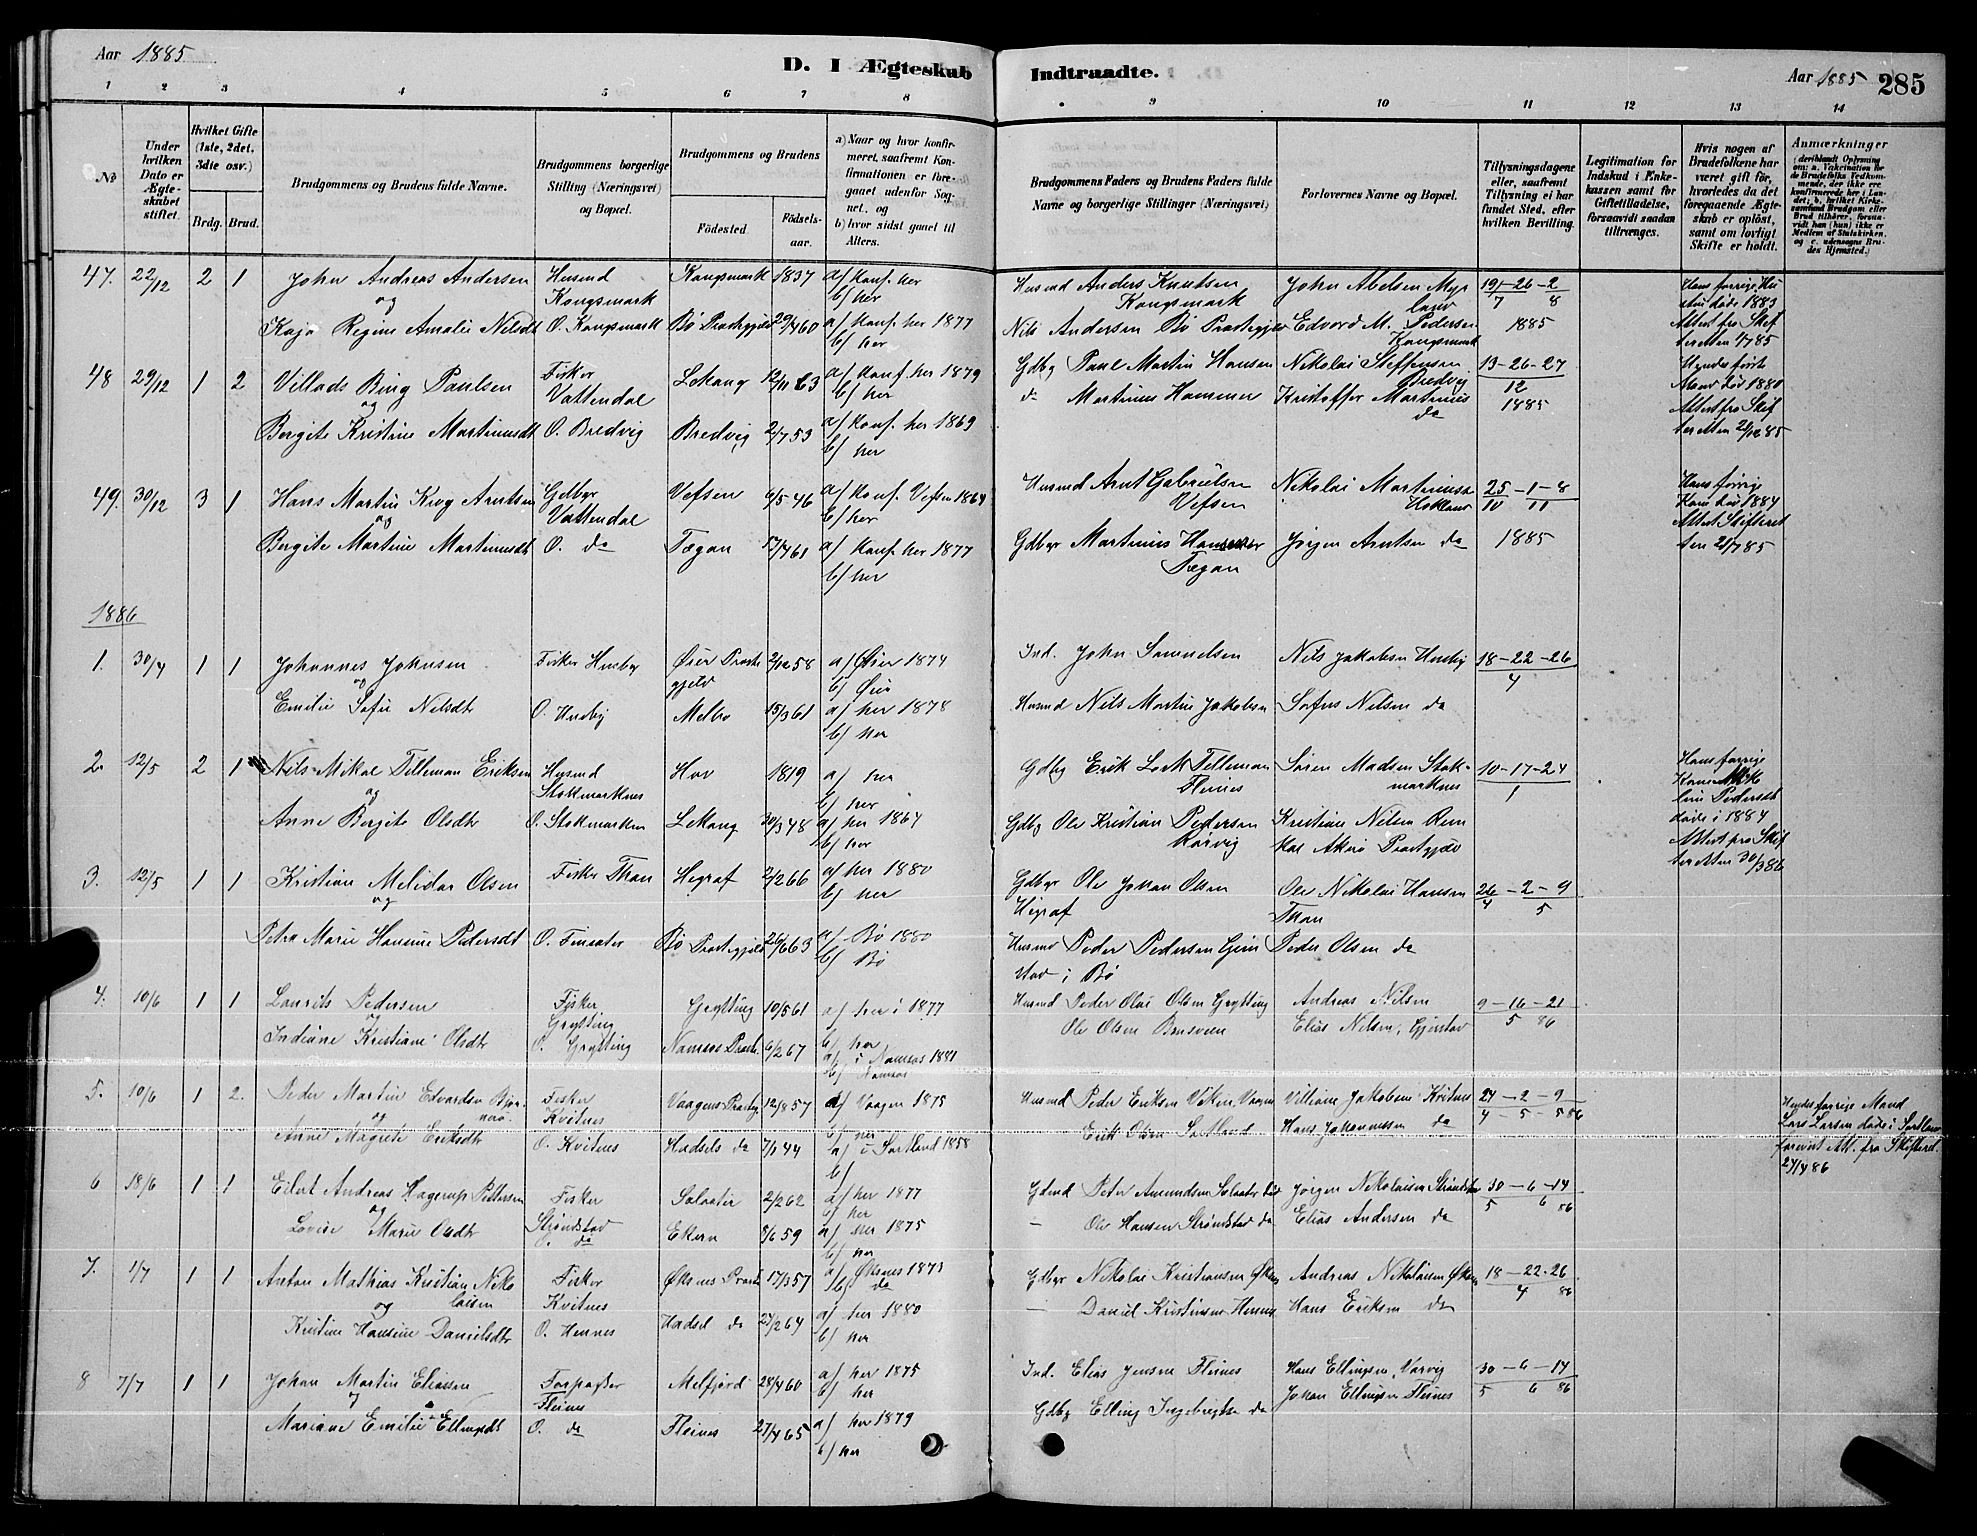 Aar 1885
D. I Ægteskab Indtraadte.
Aar 1885 285
1 2 3 4 5 6 7 8 9 10 11 12 13 14
No
Under hvilken Dato er Ægteskabet stiftet.
Hvilket Gifte (1ste, 2det, 3die osv.)
Brdg. Brud.
Brudgommens og Brudens fulde Navne.
Brudgommens borgerlige Stilling (Næringsvei) og Bopæl.
Brudgommens og Brudens
Födested
Födselsaar.
a) Naar og hvor konfirmeret, saafremt Konfirmationen er foregaaet udenfor Sognet, og
b) hvor sidst gaaet til Alters.
Brudgommens Faders og Brudens Faders fulde Navne og borgerlige Stillinger (Næringsvei)
Forlovernes Navne og Bopæl.
Tillysningsdagene eller, saafremt Tillysning ei har fundet Sted, efter hvilken Bevilling.
Legitimation for Indskud i Ænkekassen samt for Giftetilladelse, forsaavidt saadan tiltrænges.
Hvis nogen af Brudefolkene har været gift før, hvorledes da det foregaaende Ægteskab er opløst, samt om lovligt Skifte er holdt.
Anmærkninger
47. 22/12 2 1 John Andreas Andersen Husmd Kongsmark Kongsmark 1837 a/ konf. her b/ her Husmd Anders Knutsen Kongsmark John Abelsen Myrland 19-26-2 7 8 1885
og
Kaja Regine Amalie Nilsdt O. Kongsmark Bø Prestegjeld 29/4 60 a/ konf. her 1877 b/ her Nils Andersen Bø Prestegjeld Edvard M. Pedersen Kongsmark
Hans forrige Hustru døde 1883 Attest fra Skifteretten 4/7 85
48 29/12 1 2 Villads Bing Paulsen Fisker Vattendal Lekang 12/11 63 a/ konf. her 1879 b/ her Gdbg Paul Martin Hansen Nikolai Steffensen Bredvig 13-26-27 12 1885
og
Bergite Kristine Martinusdt O. Bredvig Bredvig 2/7 53 a/ konf. her 1869 b/ her do Martinus Hammer Kristoffer Martinus do
Hendes første Mand død 1880 Attest fra Skifteretten 21/12 85
49. 30/12 3 1 Hans Martin Krog Arntsen Gdbgr Vattendal Vefsen 9/5 46 a/ konf. Vefsen 1864 b/ her Husmd Arnt Gabrielsen Vefsen Nikolai Martinussen Hokland 25-1-8 10 11 1885
og
Bergite Martine Martinusdt O. do Tægan 17/4 61 a/ konf. her 1877 b/ her Gdbgr Martinus Hammer Tægan Jørgen Arntsen do
Hans forrige Kone død 1884 Attest Skifteretten 21/7 85
1886
1. 30/4 1 1 Johannes Johnsen Fisker Husby Øier Prestegjeld 2/12 58 a/ Øier 1874 b/ Øier Ind. John Samuelsen Nils Jakobsen Husby 18-22-26 4
og
Emilie Sofie Nilsdt O. Husby Melbo 15/3 61 a/ her 1878 b/ her Husmd Nils Martin Jakobsen Sofus Nilsen do
2. 12/5 2 1 Nils Mikal Tilleman Eriksen Husmd Stokmarknes Hov 1819 a/ her b/ her Gdbg Erik Lock Tilleman Fleines Søren Madsen Stokmarknes 10-17-24 1
og
Anne Bergite Olsdt O. Stokmarknes Lekang 30/3 48 a/ her 1864 b/ her Gdbg Ole Kristian Pedersen Rørvig Kristian Nilsen
Hans forrige Kone Pedersdt døde i 1884 Attest fra Skifteretten 30/3 86
3. 12/5 1 1 Kristian Melidar Olsen Fisker Than Hegraf 2/2 66 a/ her 1880 b/ her Gdbgr Ole Johan Olsen Higraf Ole Nikolai Hansen Than 26-2-9 4 5
og
Petra Marie Hansine Pedersdt O. Finsæter Bø Prestegjeld 26/6 63 a/ Bø 1880 b/ Bø Husmd Peder Pedersen i Bø Peder Olsen do
4. 10/6 1 1 Laurits Pedersen Fisker Grytting Grytting 10/5 61 a/ her i 1877 b/ her Husmd Peder Olai Olsen Grytting Andreas Nilsen 9-16-21 5 86
og
Indiane Kristiane Olsdt O. Grytting Namsos Prest. 6/2 67 a/ i Namsos 1881 b/ Namsos Ole Olsen Elias Nilsen, Gjerstad
5. 10/6 1 2. Peder Martin Edvardsen Fisker Kvitnes Vaagens Prestg 12/8 57 a/ Vaagen 1875 b/ her Husmd Peder Eriksen Viken, Vaagen Villiam Jakobsen Kvitnes 24-2-9 4-5-5 86
og
Anne Magrete Eriksdt O. Kvitnes Hadsels do 7/1 44 a/ i Sortland 1858 b/ Erik Olsen Sortland Hans Johannessen do
Hendes forrige Mand Lars Larsen døde i Sortland forevist Att. fra Skifteret. 27/4 86
6 18/6 1 1 Eilert Andreas Hagerup Pettersen Fisker Strøndstad Salsater 2/2 62 a/ her 1877 b/ her Gdmd Peter Amundsen Jørgen Nikolaisen Strøndstad 30-6-14 5 6 86
og
Lovise Marie Olsdt O. do Ekern 5/6 59 a/ her 1875 b/ her — Ole Hansen Strøndstad do Elias Andersen do
7. 1/7 1 1 Anton Mathias Kristian Nikolaisen Fisker Kvitnes Øksnes Prest. 17/3 57 a/ Øksnes 1873 b/ do Gdbgr Nikolai Kristiansen Øksn. Andreas Nikolaisen Øksn. 18-22-26 4 86
og
Kristine Hansine Danielsdt O. Hennes Hadsel do 27/2 64 a/ her 1880 b/ her — Daniel Kristiansen Hennes Hans Eriksen do
8 7/7 1 1 Johan Martin Eliassen Forpagter Fleines Melfjord 28/4 60 a/ her 1875 b/ her Ind. Elias Jensen Fleines Hans Ellingsen, Varvig 30-6-14 5 6 86
og
Mariane Emilie Ellingsdt O. do Fleines 27/4 65 a/ her 1879 b/ her Gdbg Elling Ingebrigtsen do Johan Ellingsen Fleines